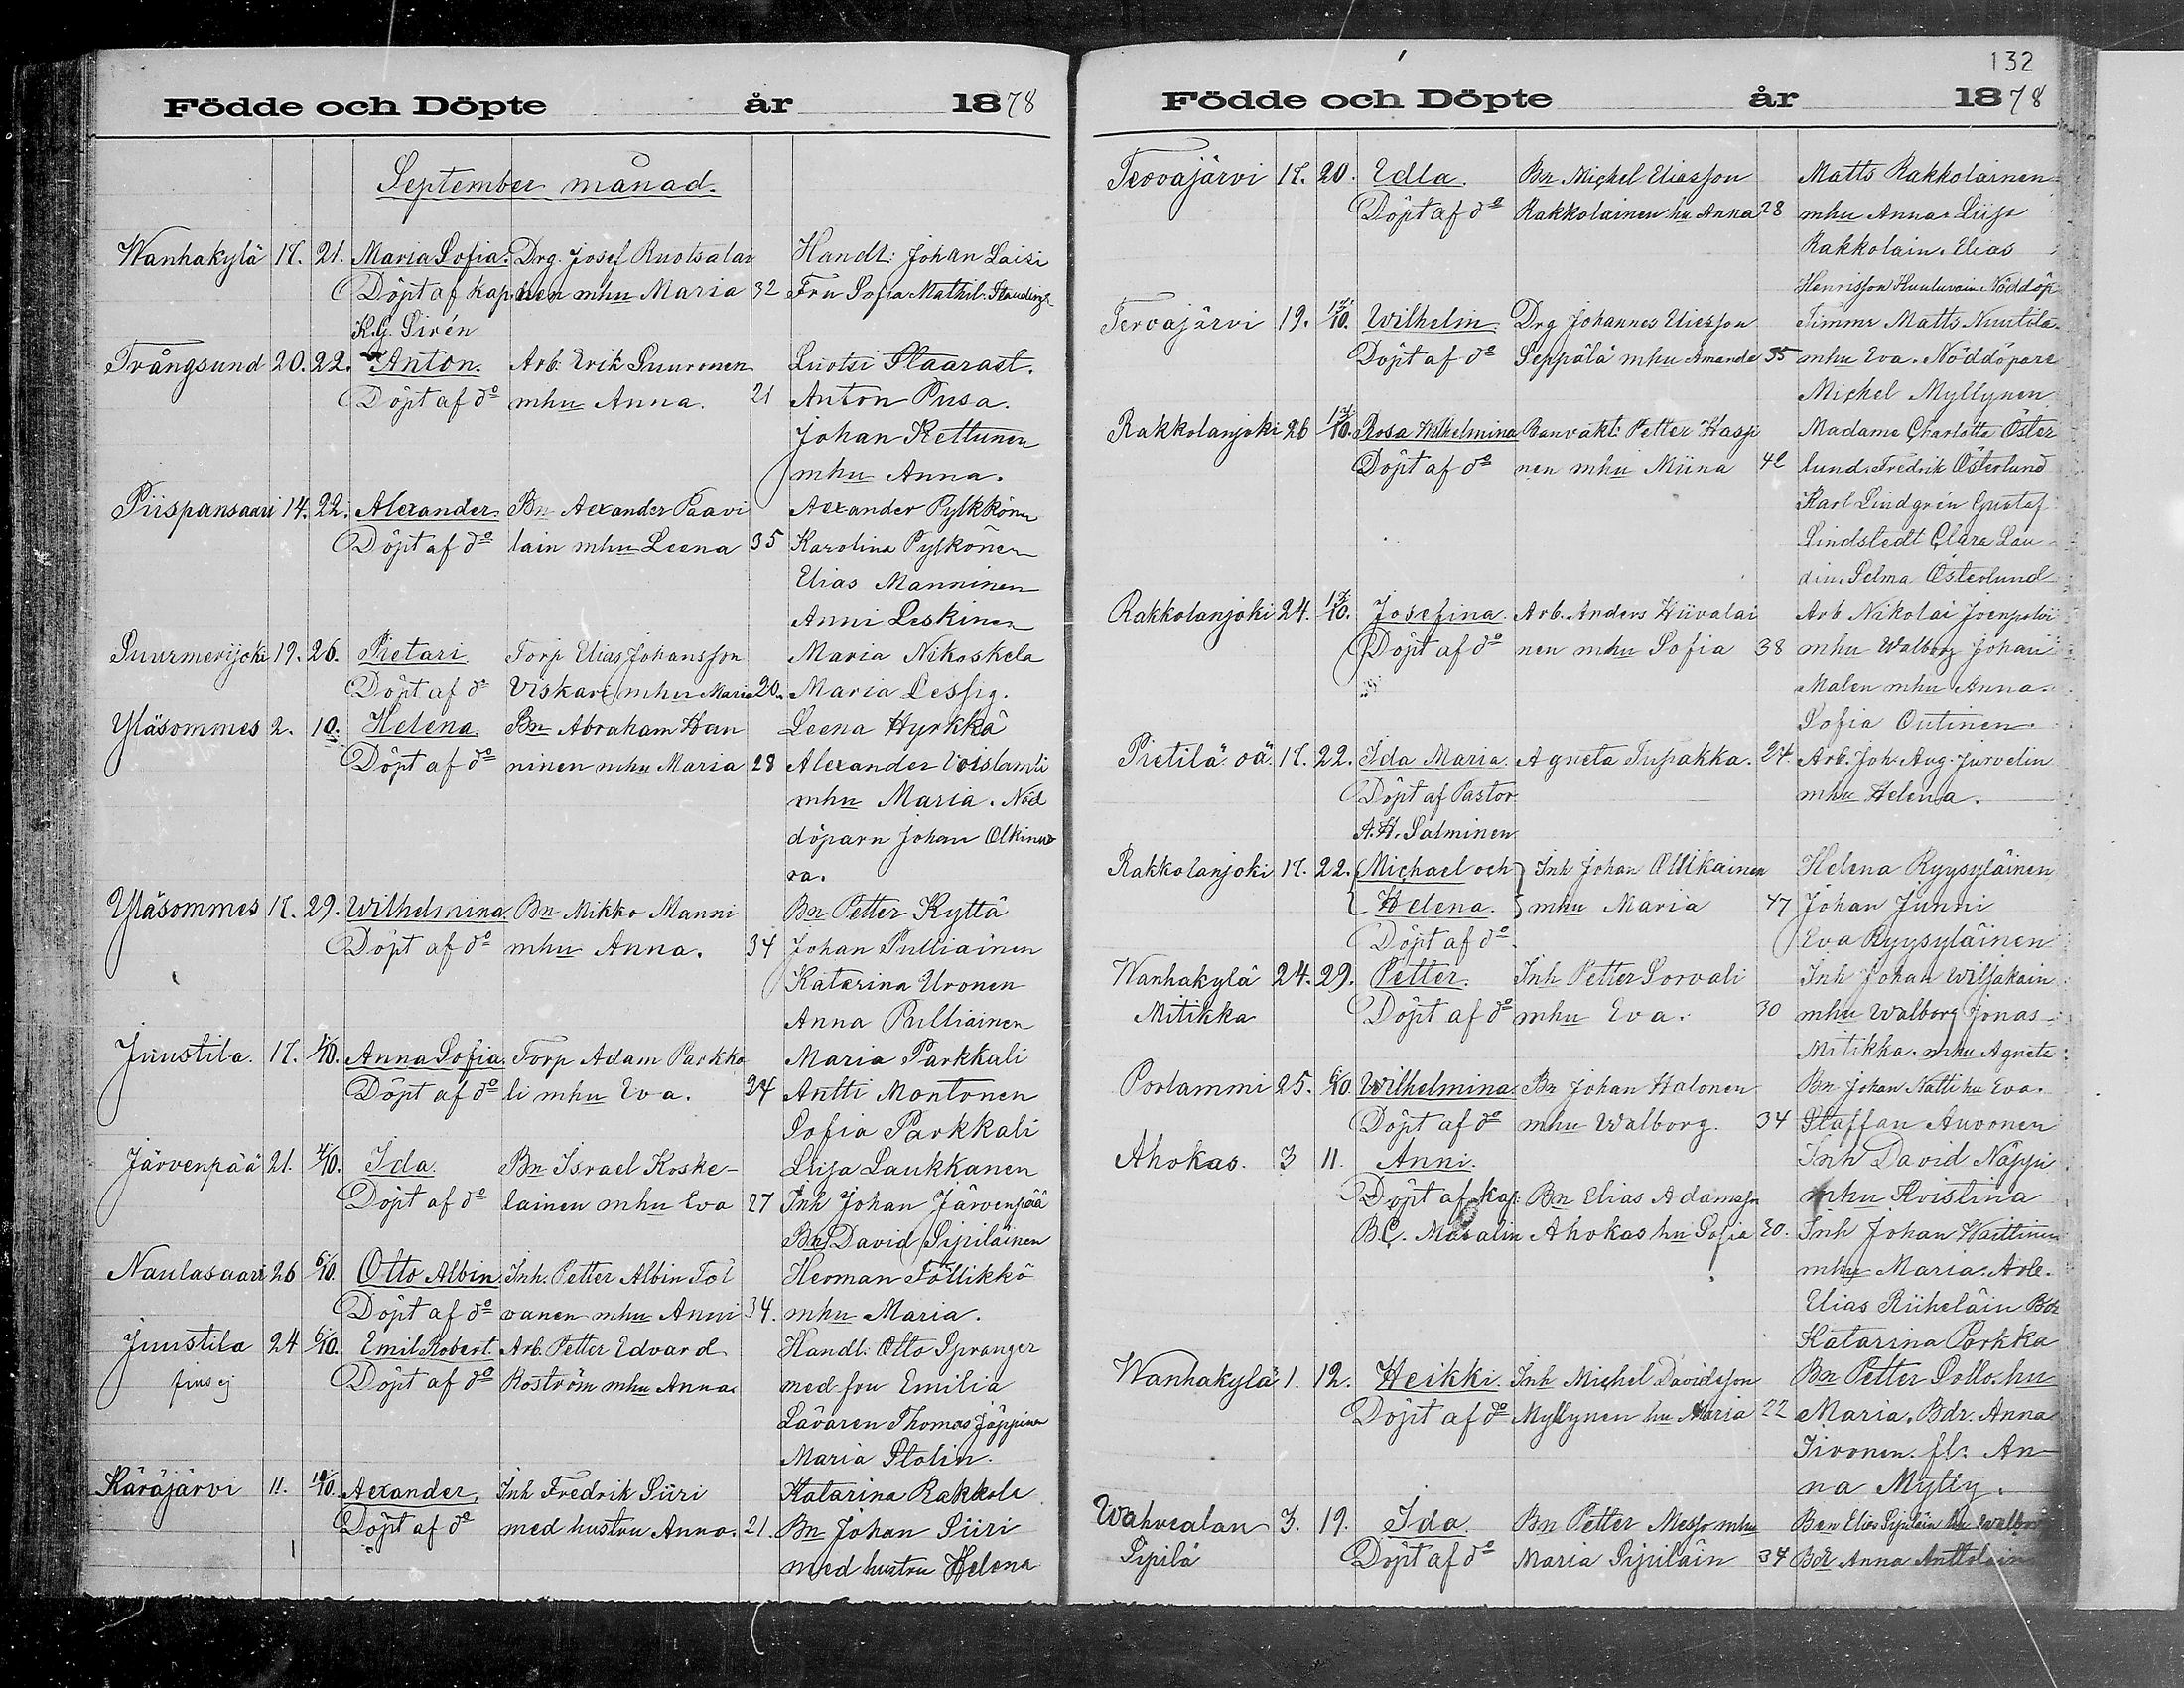 Födde och Döpte år 1878
September månad.
Wanhakylä 17. 21. Maria Sofia. Drg. Josef Ruotsalai Handl: Johan Laisi
Döpt af Kap. nen mhu Maria 32 Fru Sofia Mathil.
K.G. Sirén
Trångsund 20. 22. Anton. Arb. Erik Suuronen Luotsi Staarast.
Döpt af do mhu Anna. 21 Anton Pusa.
Johan Kettunen
mhu Anna.
Piispansaari 14. 22. Alexander. Bn Aexander Paavi Aexander Pylkköne
Döpt af do lain mhu Leena 35 Karolina Pylkönen
Elias Manninen
Anni Leskinen
Suurmerijoki 19. 26. Pietari Torp Elias Johansson Maria Nikoskela
Döpt af do Viskari mhu Maria 20. Maria Lessig.
Yläsommes 2. 10. Helena. Bn Abraham Han Leena Hyrkkä
Döpt af do ninen mhu Maria 28 Alexander Voislamti
mhu Maria. Nöd
döparn Johan Olkinuo
ra.
Yläsommes 17. 29. Wilhelmina. Bn Mikko Manni Bn Petter Kyttä
Döpt af do mhu Anna. 34 Johan Pulliainen
Katarina Uronen
Anna Pulliainen
Juustila. 17. 4/10. Anna Sofia. Torp Adam Parkka Maria Parkkali
Döpt af do li mhu Eva. 24 Antti Montonen
Sofia Parkkali
Järvenpää 21. 4/10. Ida. Bn Israel Koske- Liisa Laukkanen
Döpt af do lainen mhu Eva 27 Inh Johan Järvenpää
Bn David Sipiläinen
Naulasaari 26 6/10. Otto Albin. Inh. Petter Albin Tol Herman Töllikkö
Döpt af do vanen mhu Anni 34. mhu Maria.
Juustila 24 6/10. Emil Robert. Arb. Petter Edvard Handl: Otto Spranger
fins ej Döpt af do Roström mhu Anna. med fru Emilia
Lävaren Thomas Jäppinen
Maria Stolin.
Käräjärvi 11. 10/10. Aexander, Inh Fredrik Siiri Katarina Rakkola
Döpt af do med hustru Anna. 21. Bn Johan Siiri
med hustru Helena
132
Födde och Döpte år 1878
Tervajärvi 17. 20. Edla. Bn Michel Eliasson Matts Rakkolainen
Döpt af do Rakkolainen hu Anna 28 mhu Anna. Liisa
Rakkolain. Elias
Henrisson Huuluvain Nöddöp
Tervajärvi 19. 12/10. Wilhelm. Drg Johannes Eliesson Timmr Matts Nuutila.
Döpt af do Seppälä mhu Amanda 35 mhu Eva. Nöddöpare
Michel Myllynen
Rakkolanjoki 26 12/10. Rosa Wilhelmina Banvakt: Petter Haspi Madame Charlotta Öster
Döpt af do nen mhu Miina 42 lund. Fredrik Österlund
Karl Lindgrén Gustaf
Lindstedt Clara Lau
din. Selma Österlund
Rakkolanjoki 24. 12/10. Josefina. Arb. Anders Hiivalai Arb Nikolai
Döpt af do nen mhu Sofia 38 mhu Walborg Johan
Malen mhu Anna.
Sofia Outinen.
Pietilä oä 17. 22. Ida Maria. Agneta Tupakka. 27. Arb. Joh. Aug. Jurvelin
Döpt af Pastor mhu Helena.
A.H. Salminen
Rakkolanjoki 17. 22. Michael och Inh Johan Ollikainen Helena Ryysyläinen
Helena. mhu Maria 47 Johan Junni
Döpt af do. Eva Ryysyläinen
Wanhakylä 24. 29. Petter. Inh Petter Sorvali Inh Johan Wiljakain
Mitikka Döpt af do mhu Eva. 30 mhu Walborg Jonas
Mitikka. mhu Agneta
Porlammi 25. 6/10 Wilhelmina. Bn Johan Halonen Bn Johan Natti hu Eva.
Döpt af do mhu Walborg. 34 Staffan Auvonen
Ahokas. 3 11. Anni. Inh David Näppi
Döpt af Kap. Bn Elias Adamsson mhu Kristina
B.C. Masalin Ahokas hu Sofia 30. Inh Johan Waittinen
mhu Maria. Arb.
Elias Riiheläin Bdr
Katarina Porkka
Wanhakylä 1. 12. Heikki. Inh Michel Davidsson Bn Petter Pollo. hu
Döpt af do Myllynen hu Maria 22 Maria. Bdr. Anna
Iivonen. fl. An-
na Mylly.
Wahvealan 3. 19. Ida. Bn Petter Messo mhu Bn Elias Sipiläin hu Walbor
Sipilä Döpt af do Maria Sipiläin 34 Bdr Anna